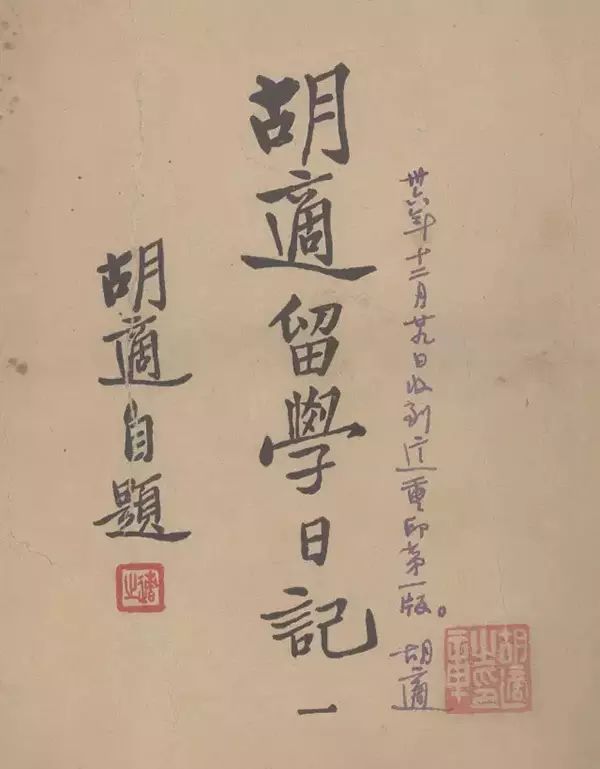 卅六年十二月廿九日收到這重印第一版。
胡適
胡適留學日記 一
胡適自題
適之
胡適